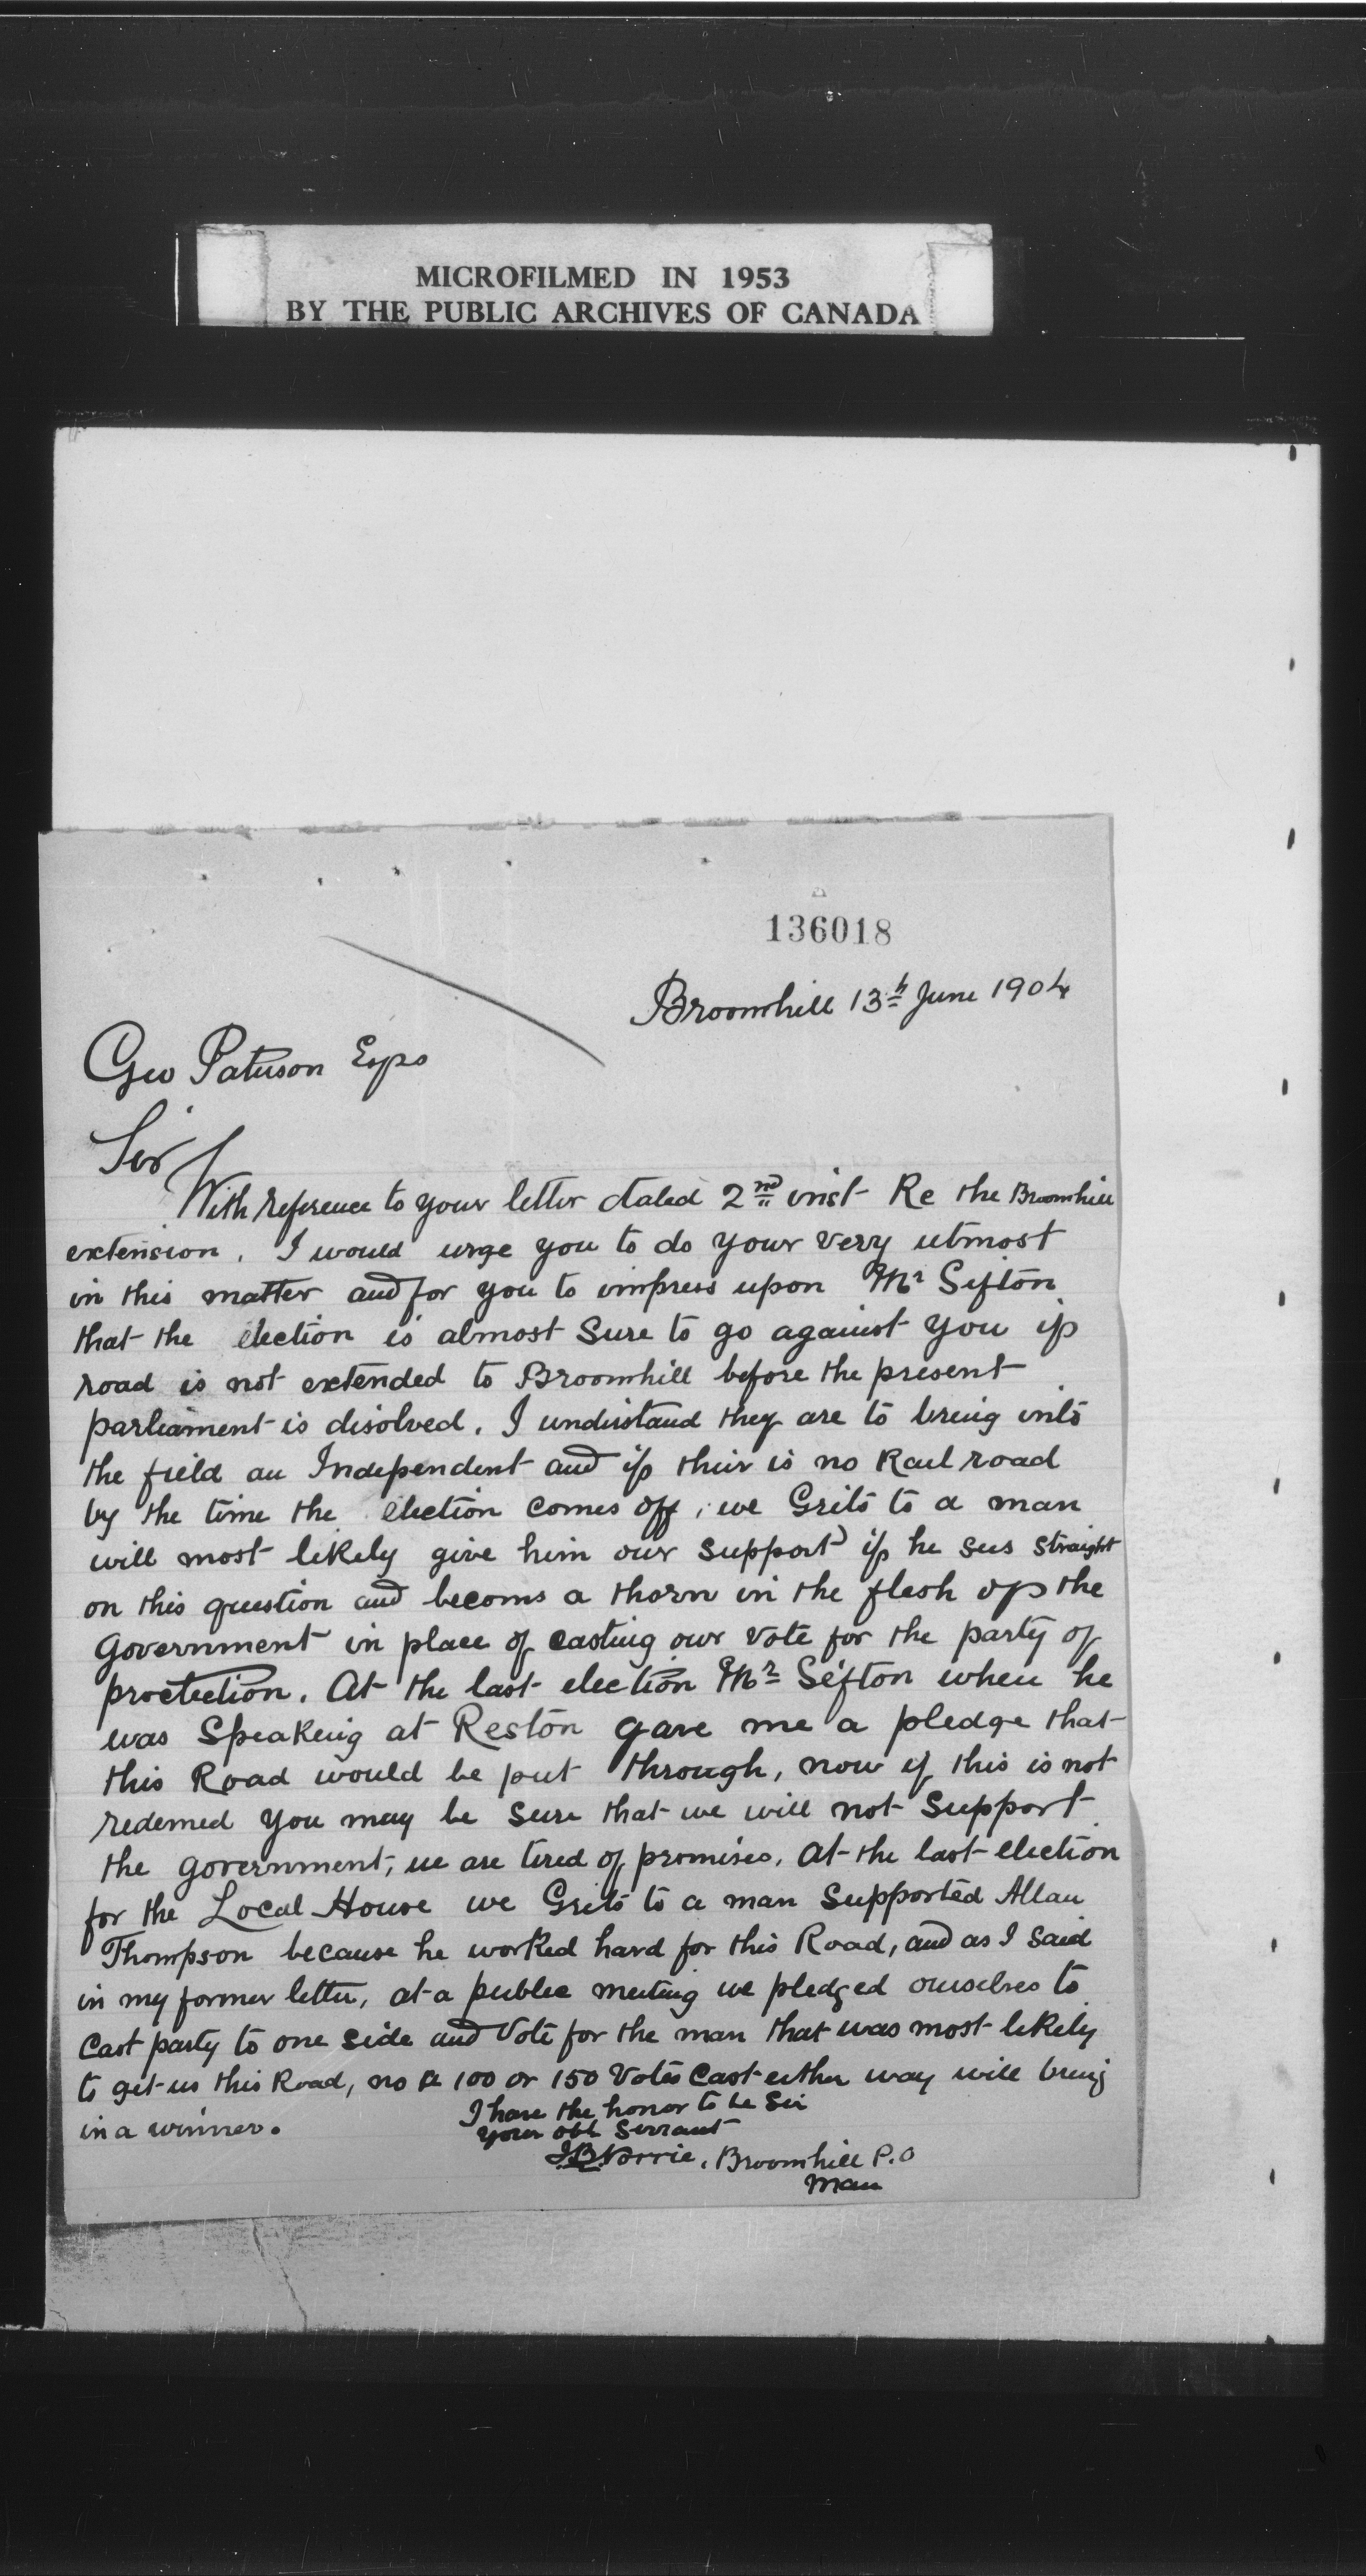 MICROFILMED IN 1953
BY THE PUBLIC ARCHIVES OF CANADA
136018
Broomhill 13th June 1904
Geo Paterson Esqre
Sir
With reference to your letter dated 2nd inst Re the Broomhill
extension. I would urge you to do your very utmost
in this matter and for you to impress upon Mr Sifton
that the election is almost Sure to go against you if
road is not extended to Broomhill before the present
parliament is disolved. I understand they are to bring into
the field an Independent and if thier is no Rail road
by the time the election comes off, we Grits to a man
will most likely give him our support if he sees straight
on this question and becoms a thorn in the flesh of the
Government in place of casting our vote for the party of
proctection. At the last election Mr Sefton when he
was Speaking at Reston gave me a pledge that
this Road would be put through, now if this is not
redemed you may be sure that we will not Support
the government, we are tired of promises. At the last election
for the Local House we Grits to a man supported Allan
Thompson because he worked hard for this Road, and as I said
in my former letter, at a public meeting we pledged ourselves to
Cast party to one side and Vote for the man that was most likely
to get us this Road, no 100 or 150 Votes Cast either way will bring
in a winner.
I have the honor to be Sir
your obt Servant
J.B. Norrie, Broomhill P.O
Man